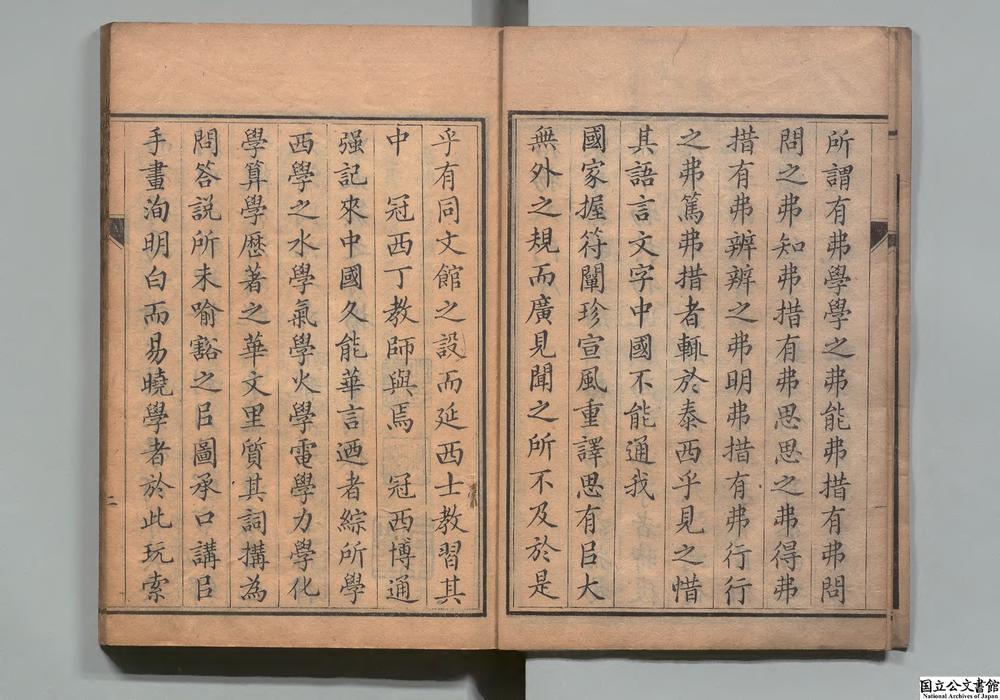 所謂有弗學學之弗能弗措有弗問
問之弗知弗措有弗思思之弗得弗
措有弗辨辨之弗明弗措有弗行行
之弗篤弗措者輒於泰西乎見之惜
其語言文字中國不能通我
國家握符闡珍宣風重譯思有㠯大
無外之規而廣見聞之所不及於是
乎有同文館之設而延西士教習其
中　冠西丁教師與焉　冠西博通
强記來中國久能華言迺者綜所學
西學之水學氣學火學電學力學化
學算學歷著之華文里質其詞搆為
問答說所未喻豁之㠯圖承口講㠯
手畫洵明白而易曉學者於此玩索
二
国立公文書館
National Archives of Japan